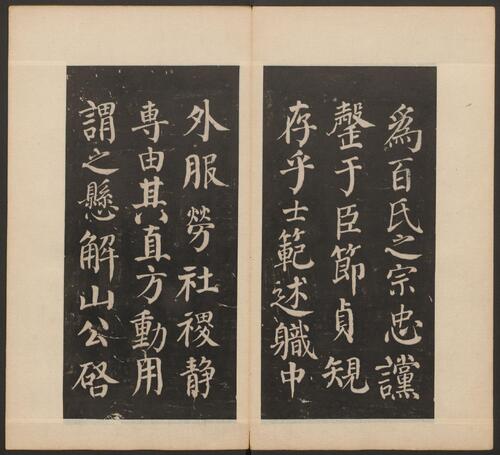 爲百氏之宗忠讜
罄于臣節貞䂓
存乎士範述軄中
外服勞社稷静
專由其直方動用
謂之懸解山公啓